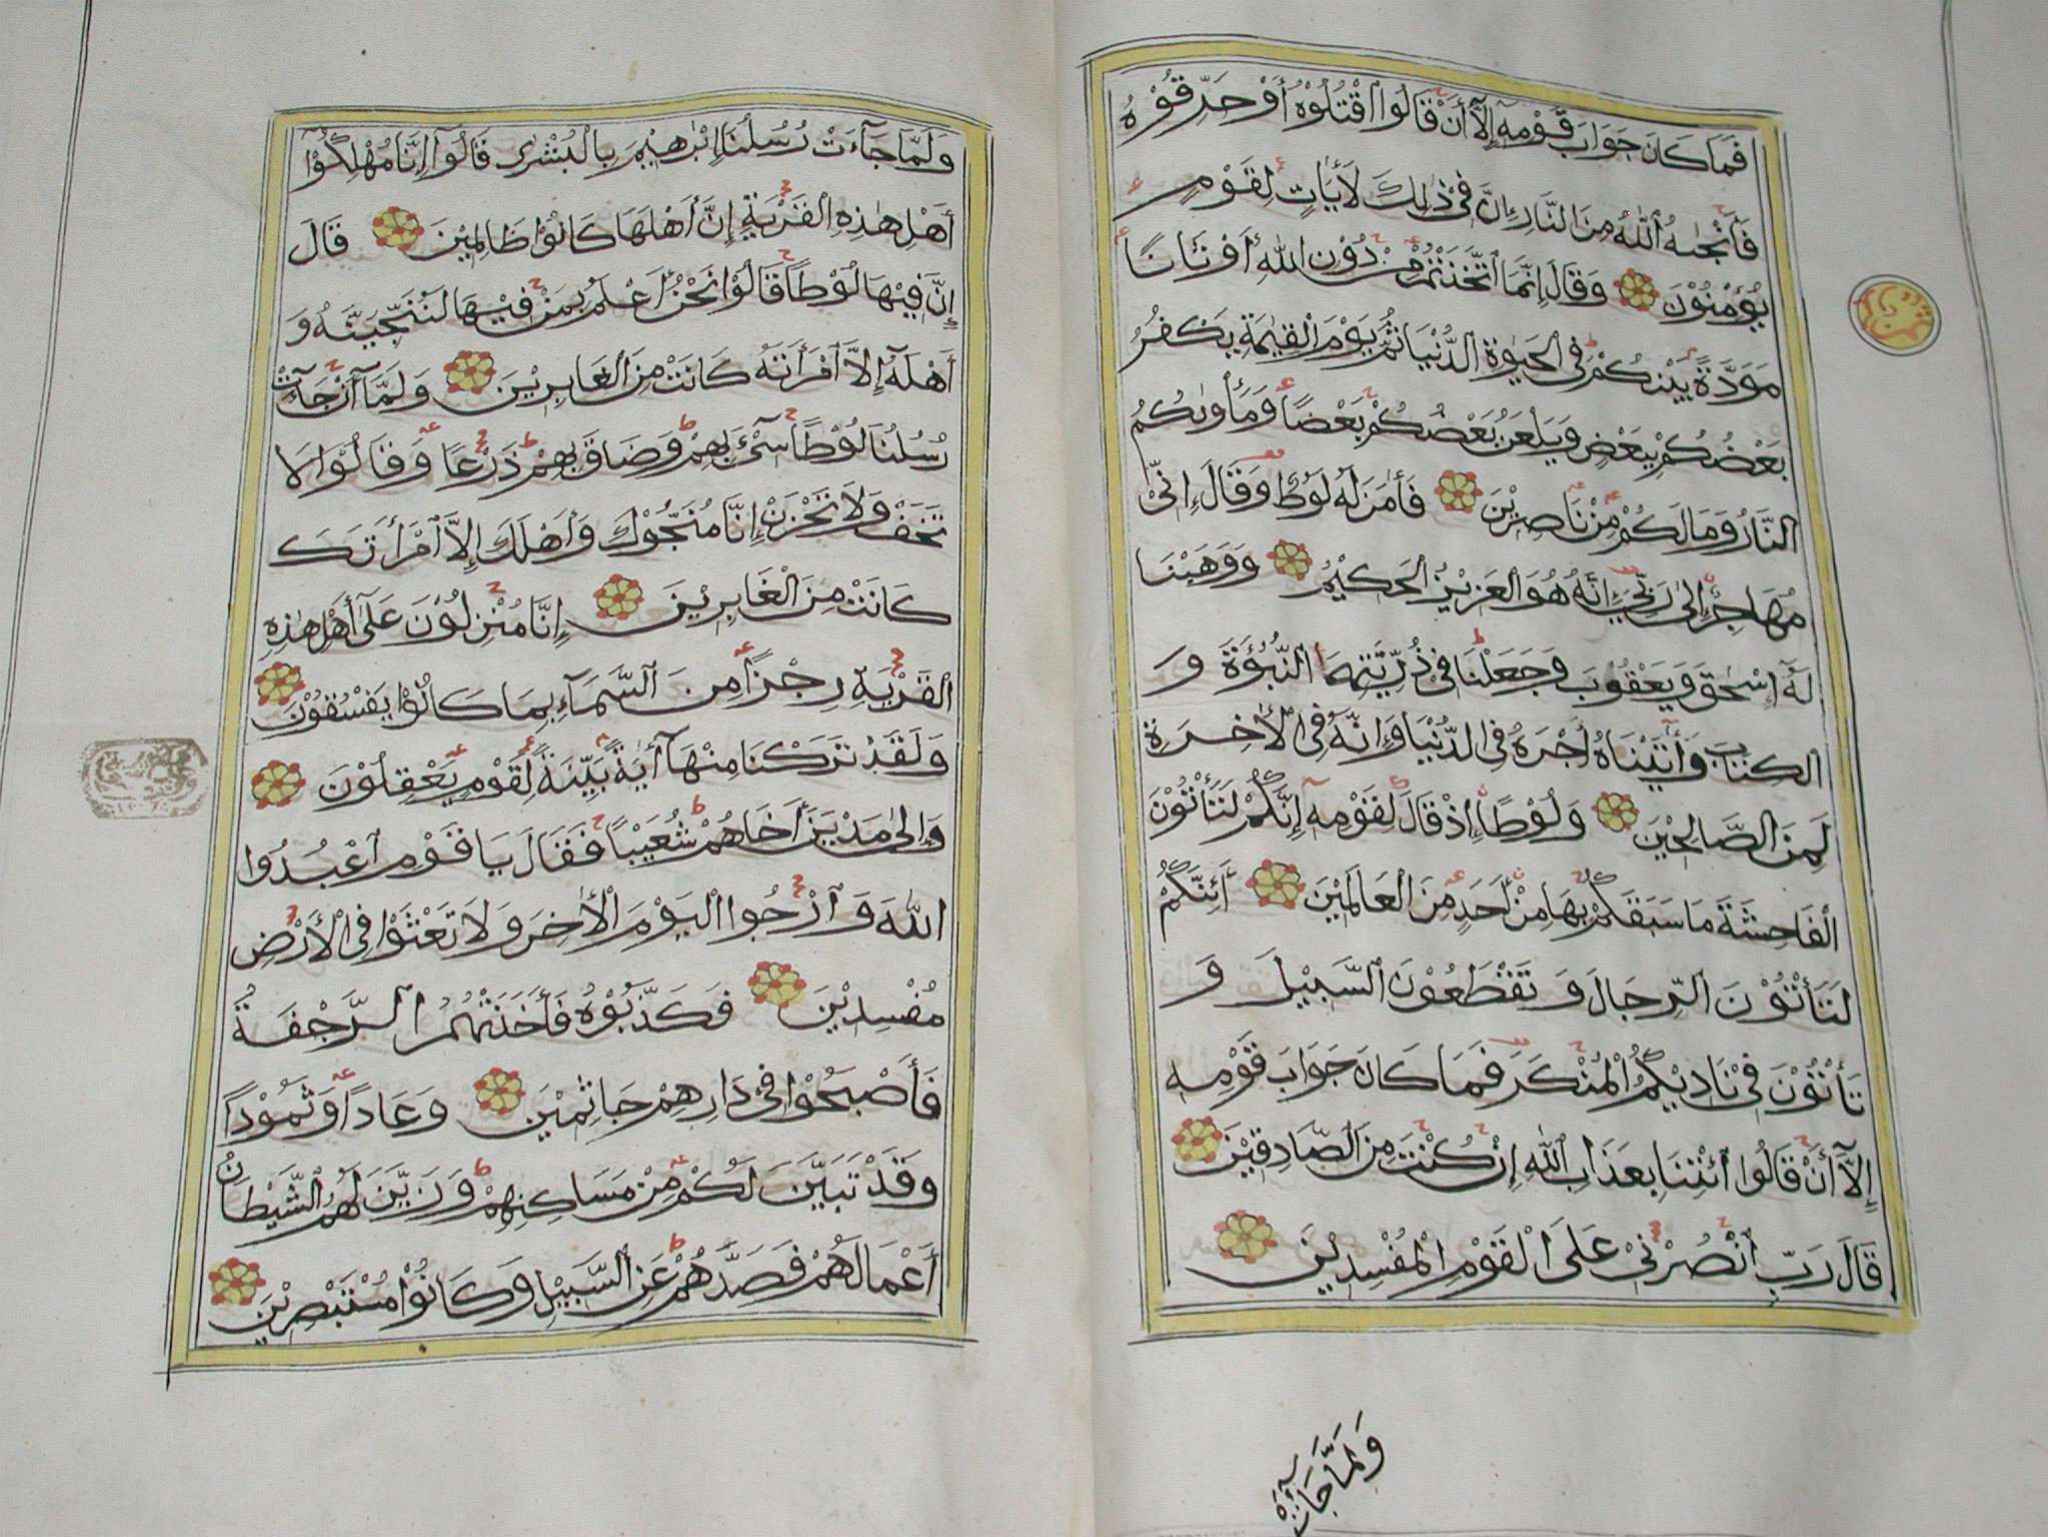 فَمَا كَانَ جَوَابَ قَوْمِهِ إِلَّا أَنْ قَالُوا اقْتُلُوْهُ أَوْ حَرِّقُوْهُ
فَأَنْجٰىهُ اللّٰهُ مِنَ النَّارِ إِنَّ فِيْ ذٰلِكَ لَأَيَاتٍ لِقَوْمٍ
يُؤْمِنُوْنَ وَقَالَ إِنَّمَا اتَّخَذْتُمْ مِنْ دُوْنِ اللّٰهِ أَوْثَانًا
مَوَدَّةَ بَيْنِكُمْ فِي الْحَيٰوةِ الدُّنْيَا ثُمَّ يَوْمَ الْقِيٰمَةِ يَكْفُرُ
بَعْضُكُمْ بِبَعْضٍ وَيَلْعَنُ بَعْضُكُمْ بَعْضًا وَمَأْوٰىكُمُ
النَّارُ وَمَا لَكُمْ مِنْ نَاصِرِيْنَ فَأٰمَنَ لَهُ لُوْطٌ وَقَالَ إِنِّيْ
مُهَاجِرٌ إِلٰى رَبِّيْ إِنَّهُ هُوَ الْعَزِيْزُ الْحَكِيْمُ وَوَهَبْنَا
لَهُ إِسْحٰقَ وَيَعْقُوْبَ وَجَعَلْنَا فِيْ ذُرِّيَّتِهِمَا النُّبُوَّةَ وَ
الْكِتَابَ وَأٰتَيْنَاهُ أَجْرَهُ فِي الدُّنْيَا وَإِنَّهُ فِي الْأٰخِرَةِ
لَمِنَ الصَّالِحِيْنَ وَلُوْطًا إِذْ قَالَ لِقَوْمِهِ إِنَّكُمْ لَتَأْتُوْنَ
الْفَاحِشَةَ مَا سَبَقَكُمْ بِهَا مِنْ أَحَدٍ مِنَ الْعَالَمِيْنَ أَئِنَّكُمْ
لَتَأْتُوْنَ الرِّجَالَ وَتَقْطَعُوْنَ السَّبِيْلَ وَ
تَأْتُوْنَ فِيْ نَادِيْكُمُ الْمُنْكَرَ فَمَا كَانَ جَوَابَ قَوْمِهِ
إِلَّا أَنْ قَالُوا ائْتِنَا بِعَذَابِ اللّٰهِ إِنْ كُنْتَ مِنَ الصَّادِقِيْنَ
قَالَ رَبِّ انْصُرْنِيْ عَلَى الْقَوْمِ الْمُفْسِدِيْنَ
وَلَمَّا جَآءَتْ
وَلَمَّا جَآءَتْ رُسُلُنَا إِبْرٰهِيْمَ بِالْبُشْرٰى قَالُوْا إِنَّا مُهْلِكُوْا
أَهْلِ هٰذِهِ الْقَرْيَةِ إِنَّ أَهْلَهَا كَانُوْا ظَالِمِيْنَ قَالَ
إِنَّ فِيْهَا لُوْطًا قَالُوْا نَحْنُ أَعْلَمُ بِمَنْ فِيْهَا لَنُنَجِّيَنَّهُ وَ
أَهْلَهُ إِلَّا امْرَأَتَهُ كَانَتْ مِنَ الْغَابِرِيْنَ وَلَمَّا أَنْ جَآءَتْ
رُسُلُنَا لُوْطًا سِيْءَ بِهِمْ وَضَاقَ بِهِمْ ذَرْعًا وَقَالُوْا لَا
تَخَفْ وَلَا تَحْزَنْ إِنَّا مُنَجُّوْكَ وَأَهْلَكَ إِلَّا امْرَأَتَكَ
كَانَتْ مِنَ الْغَابِرِيْنَ إِنَّا مُنْزِلُوْنَ عَلٰى أَهْلِ هٰذِهِ
الْقَرْيَةِ رِجْزًا مِنَ السَّمَآءِ بِمَا كَانُوْا يَفْسُقُوْنَ
وَلَقَدْ تَرَكْنَا مِنْهَا أٰيَةً بَيِّنَةً لِقَوْمٍ يَعْقِلُوْنَ
وَإِلٰى مَدْيَنَ أَخَاهُمْ شُعَيْبًا فَقَالَ يَا قَوْمِ اعْبُدُوا
اللّٰهَ وَارْجُوا الْيَوْمَ الْأٰخِرَ وَلَا تَعْثَوْا فِي الْأَرْضِ
مُفْسِدِيْنَ فَكَذَّبُوْهُ فَأَخَذَتْهُمُ الرَّجْفَةُ
فَأَصْبَحُوْا فِيْ دَارِهِمْ جَاثِمِيْنَ وَعَادًا وَثَمُوْدًا
وَقَدْ تَبَيَّنَ لَكُمْ مِنْ مَسَاكِنِهِمْ وَزَيَّنَ لَهُمُ الشَّيْطَانُ
أَعْمَالَهُمْ فَصَدَّهُمْ عَنِ السَّبِيْلِ وَكَانُوْا مُسْتَبْصِرِيْنَ